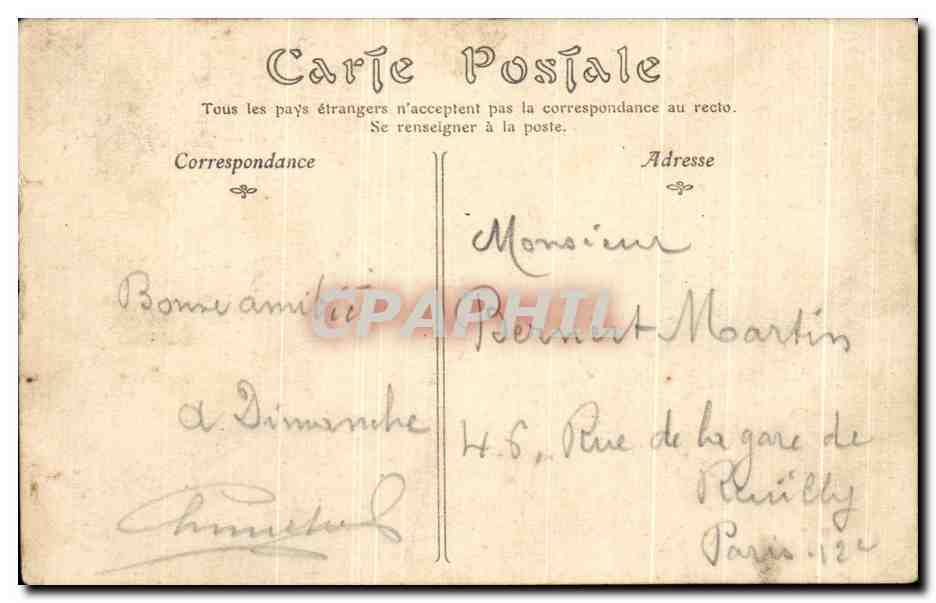 Carte Postale
Tous les pays étrangers n'acceptent pas la correspondance au recto.
Se renseigner à la poste.
Correspondance
Bonne amitié
à Dimanche
Adresse
Monsieur
Bernert Martin
46, Rue de la gare de
Reuilly
Paris 12e
CPAPHIL